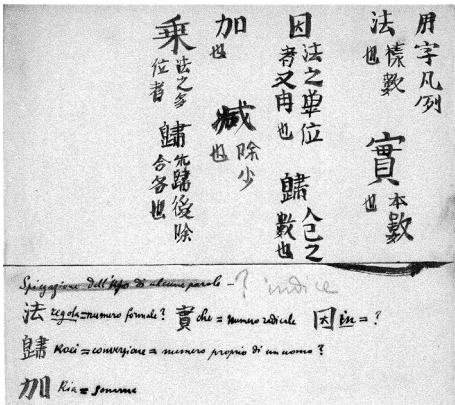 用字凡例
法 樣數也 實 本數也
因 法之単位者又冉也 歸 人己之數也
加也 减 除少也
乘 法之多位者 歸 先歸後除合各也
Spiegazione dell'uso di alcune parole – ? indice
法 regola = numero formale? 實 che = numero radicale 因 in = ?
歸 Koei = conversione = numero proprio di un uomo?
加 Kia =